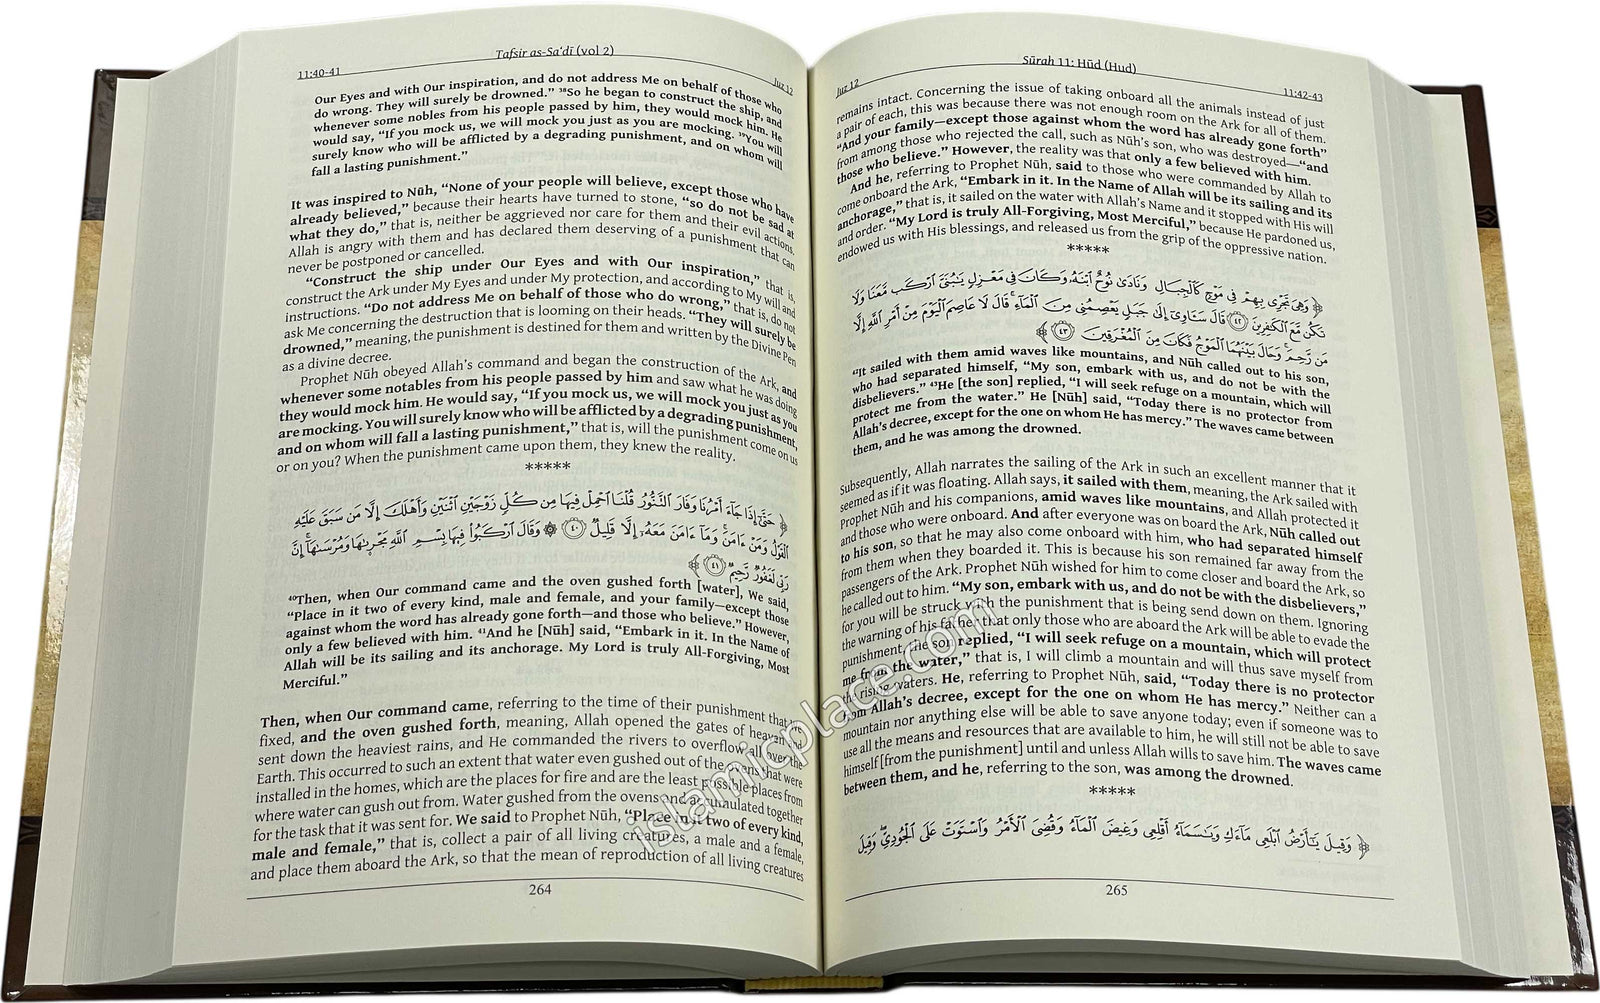 Tafsir as-Sa'dī (vol 2)
11:40-41
Juz 12
Our Eyes and with Our inspiration, and do not address Me on behalf of those who
do wrong. They will surely be drowned.” ³⁸So he began to construct the ship, and
whenever some nobles from his people passed by him, they would mock him. He
would say, “If you mock us, we will mock you just as you are mocking. ³⁹You will
surely know who will be afflicted by a degrading punishment, and on whom will
fall a lasting punishment.”
It was inspired to Nūh, “None of your people will believe, except those who have
already believed,” because their hearts have turned to stone, “so do not be sad at
what they do,” that is, neither be aggrieved nor care for them and their evil actions.
Allah is angry with them and has declared them deserving of a punishment that can
never be postponed or cancelled.
“Construct the ship under Our Eyes and with Our inspiration,” that is,
construct the Ark under My Eyes and under My protection, and according to My will and
instructions. “Do not address Me on behalf of those who do wrong,” that is, do not
ask Me concerning the destruction that is looming on their heads. “They will surely be
drowned,” meaning, the punishment is destined for them and written by the Divine Pen
as a divine decree.
Prophet Nūh obeyed Allah’s command and began the construction of the Ark, and
whenever some notables from his people passed by him and saw what he was doing
they would mock him. He would say, “If you mock us, we will mock you just as you
are mocking. You will surely know who will be afflicted by a degrading punishment,
and on whom will fall a lasting punishment,” that is, will the punishment come on us
or on you? When the punishment came upon them, they knew the reality.
*****
﴿ حَتَّىٰٓ إِذَا جَآءَ أَمْرُنَا وَفَارَ ٱلتَّنُّورُ قُلْنَا ٱحْمِلْ فِيهَا مِن كُلٍّ زَوْجَيْنِ ٱثْنَيْنِ وَأَهْلَكَ إِلَّا مَن سَبَقَ عَلَيْهِ
ٱلْقَوْلُ وَمَنْ ءَامَنَ ۚ وَمَآ ءَامَنَ مَعَهُۥٓ إِلَّا قَلِيلٌ ٤٠ ۞ وَقَالَ ٱرْكَبُوا۟ فِيهَا بِسْمِ ٱللَّهِ مَجْر۪ىٰهَا وَمُرْسَىٰهَآ ۚ إِنَّ
رَبِّى لَغَفُورٌ رَّحِيمٌ ٤١ ﴾
⁴⁰Then, when Our command came and the oven gushed forth [water], We said,
“Place in it two of every kind, male and female, and your family—except those
against whom the word has already gone forth—and those who believe.” However,
only a few believed with him. ⁴¹And he [Nūh] said, “Embark in it. In the Name of
Allah will be its sailing and its anchorage. My Lord is truly All-Forgiving, Most
Merciful.”
Then, when Our command came, referring to the time of their punishment that is
fixed, and the oven gushed forth, meaning, Allah opened the gates of heaven and
sent down the heaviest rains, and He commanded the rivers to overflow all over the
Earth. This occurred to such an extent that water even gushed out of the ovens that were
installed in the homes, which are the places for fire and are the least possible places from
where water can gush out from. Water gushed from the ovens and accumulated together
for the task that it was sent for. We said to Prophet Nūh, “Place in it two of every kind,
male and female,” that is, collect a pair of all living creatures, a male and a female,
and place them aboard the Ark, so that the mean of reproduction of all living creatures
264
Sūrah 11: Hūd (Hud)
Juz 12
11:42-43
remains intact. Concerning the issue of taking onboard all the animals instead of just
a pair of each, this was because there was not enough room on the Ark for all of them.
“And your family—except those against whom the word has already gone forth”
from among those who rejected the call, such as Nūh’s son, who was destroyed—“and
those who believe.” However, the reality was that only a few believed with him.
And he, referring to Prophet Nūh, said to those who were commanded by Allah to
come onboard the Ark, “Embark in it. In the Name of Allah will be its sailing and its
anchorage,” that is, it sailed on the water with Allah’s Name and it stopped with His will
and order. “My Lord is truly All-Forgiving, Most Merciful,” because He pardoned us,
endowed us with His blessings, and released us from the grip of the oppressive nation.
*****
﴿ وَهِىَ تَجْرِى بِهِمْ فِى مَوْجٍ كَٱلْجِبَالِ وَنَادَىٰ نُوحٌ ٱبْنَهُۥ وَكَانَ فِى مَعْزِلٍ يَٰبُنَىَّ ٱرْكَب مَّعَنَا وَلَا
تَكُن مَّعَ ٱلْكَٰفِرِينَ ٤٢ قَالَ سَـَٔاوِىٓ إِلَىٰ جَبَلٍ يَعْصِمُنِى مِنَ ٱلْمَآءِ ۚ قَالَ لَا عَاصِمَ ٱلْيَوْمَ مِنْ أَمْرِ ٱللَّهِ إِلَّا
مَن رَّحِمَ ۚ وَحَالَ بَيْنَهُمَا ٱلْمَوْجُ فَكَانَ مِنَ ٱلْمُغْرَقِينَ ٤٣ ﴾
⁴²It sailed with them amid waves like mountains, and Nūh called out to his son,
who had separated himself, “My son, embark with us, and do not be with the
disbelievers.” ⁴³He [the son] replied, “I will seek refuge on a mountain, which will
protect me from the water.” He [Nūh] said, “Today there is no protector from
Allah’s decree, except for the one on whom He has mercy.” The waves came between
them, and he was among the drowned.
Subsequently, Allah narrates the sailing of the Ark in such an excellent manner that it
seemed as if it was floating. Allah says, it sailed with them, meaning, the Ark sailed with
Prophet Nūh and his companions, amid waves like mountains, and Allah protected it
and those who were onboard. And after everyone was on board the Ark, Nūh called out
to his son, so that he may also come onboard with him, who had separated himself
from them when they boarded it. This is because his son remained far away from the
passengers of the Ark. Prophet Nūh wished for him to come closer and board the Ark, so
he called out to him. “My son, embark with us, and do not be with the disbelievers,”
for you will be struck with the punishment that is being send down on them. Ignoring
the warning of his father that only those who are aboard the Ark will be able to evade the
punishment, the son replied, “I will seek refuge on a mountain, which will protect
me from the water,” that is, I will climb a mountain and will thus save myself from
the rising waters. He, referring to Prophet Nūh, said, “Today there is no protector
from Allah’s decree, except for the one on whom He has mercy.” Neither can a
mountain nor anything else will be able to save anyone today; even if someone was to
use all the means and resources that are available to him, he will still not be able to save
himself [from the punishment] until and unless Allah wills to save him. The waves came
between them, and he, referring to the son, was among the drowned.
*****
﴿ وَقِيلَ يَٰٓأَرْضُ ٱبْلَعِى مَآءَكِ وَيَٰسَمَآءُ أَقْلِعِى وَغِيضَ ٱلْمَآءُ وَقُضِىَ ٱلْأَمْرُ وَٱسْتَوَتْ عَلَى ٱلْجُودِىِّ ۖ وَقِيلَ
265
islamicplace.com